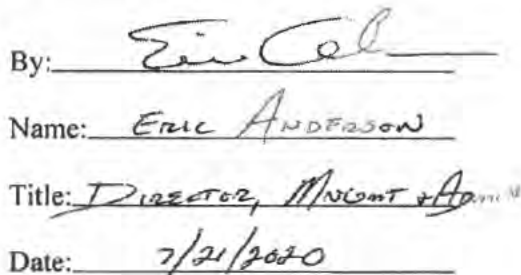 By:
Name: ERIC ANDERSON
Title: DIRECTOR, MNGMT + ADMIN
Date: 7/21/2020